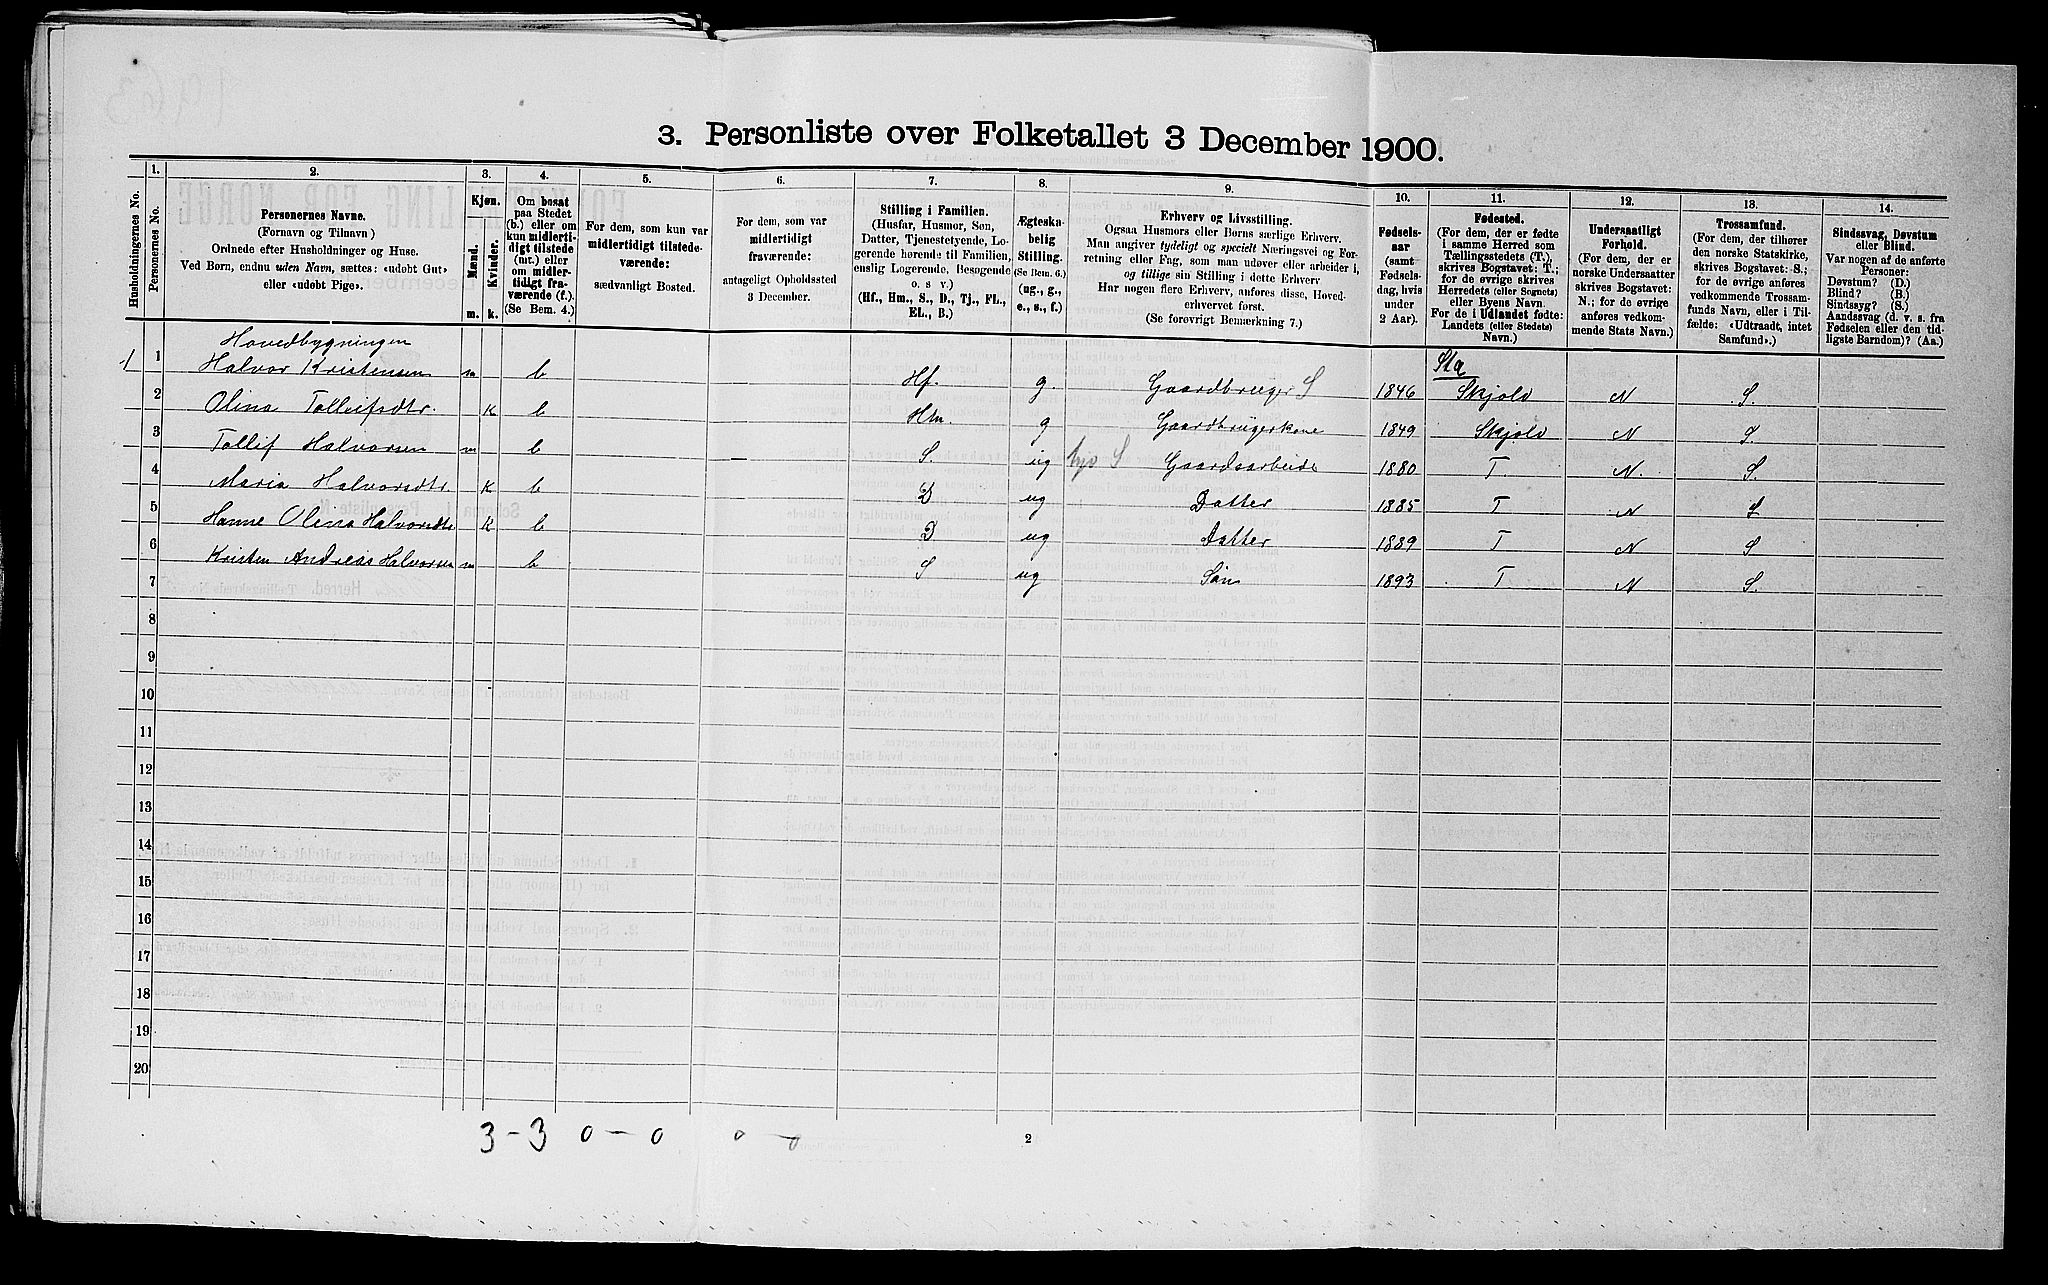 3. Personliste over Folketallet 3 December 1900.
1. 2. 3. 4. 5. 6. 7. 8. 9. 10. 11. 12. 13. 14.
Husholdningernes No.
Personernes No.
Personernes Navne.
(Fornavn og Tilnavn)
Ordnede efter Husholdninger og Huse.
Ved Børn, endnu uden Navn, sættes: «udøbt Gut»
eller «udøbt Pige».
Kjøn.
Mænd.
Kvinder.
m. k.
Om bosat
paa Stedet
(b.) eller om
kun midlerti-
digt tilstede
(mt.) eller
om midler-
tidigt fra-
værende (f.).
(Se Bem. 4.)
For dem, som kun var
midlertidigt tilstede-
værende:
sædvanligt Bosted.
For dem, som var
midlertidigt
fraværende:
antageligt Opholdssted
3 December.
Stilling i Familien.
(Husfar, Husmor, Søn,
Datter, Tjenestetyende, Lo-
gerende hørende til Familien,
enslig Logerende, Besøgende
o. s. v.)
(Hf., Hm., S., D., Tj., FL.,
EL., B.)
Ægteska-
belig
Stilling.
(Se Bem. 6.)
(ug., g.,
e., s., f.)
Erhverv og Livsstilling.
Ogsaa Husmors eller Børns særlige Erhverv.
Man angiver tydeligt og specielt Næringsvei og For-
retning eller Fag, som man udøver eller arbeider i,
og tillige sin Stilling i dette Erhverv
Har nogen flere Erhverv, anføres disse, Hoved-
erhvervet først.
(Se forøvrigt Bemærkning 7.)
Fødsels-
aar
(samt
Fødsels-
dag, hvis
under
2 Aar).
Fødested.
(For dem, der er fødte
i samme Herred som
Tællingsstedets (T.),
skrives Bogstavet: T.;
for de øvrige skrives
Herredets (eller Sognets)
eller Byens Navn.
For de i Udlandet fødte:
Landets (eller Stedets)
Navn.)
Undersaatligt
Forhold.
(For dem, der er
norske Undersaatter
skrives Bogstavet:
N.; for de øvrige
anføres vedkom-
mende Stats Navn.)
Trossamfund.
(For dem, der tilhører
den norske Statskirke,
skrives Bogstavet: S.;
for de øvrige anføres
vedkommende Trossam-
funds Navn, eller i Til-
fælde: «Udtraadt, intet
Samfund».)
Sindssvag, Døvstum
eller Blind.
Var nogen af de anførte
Personer:
Døvstum? (D.)
Blind? (B.)
Sindssyg? (S.)
Aandssvag (d. v. s. fra
Fødselen eller den tid-
ligste Barndom)? (Aa.)
Hovedbygningen
Sta
1 1 Halvor Kristensen m b Hf. g. Gaardbruger S 1846 Skjold N S.
2 Olina Tolleifsdtr. K b Hm. g Gaardbrugerkone 1849 Skjold N S
3 Tollif Halvorsen m b S. ug S Gaardsarbeide 1880 T. N. S.
4 Maria Halvorsdtr. K b D ug Datter 1885 T N S
5 Hanne Olena Halvorsdtr K b D ug Datter 1889 T N S
6 Kristen Andreas Halvorsen m b S ug Søn 1893 T N S.
7
8
9
10
11
12
13
14
15
16
17
18
19
20
3 - 3 0 - 0 0 - 0
2